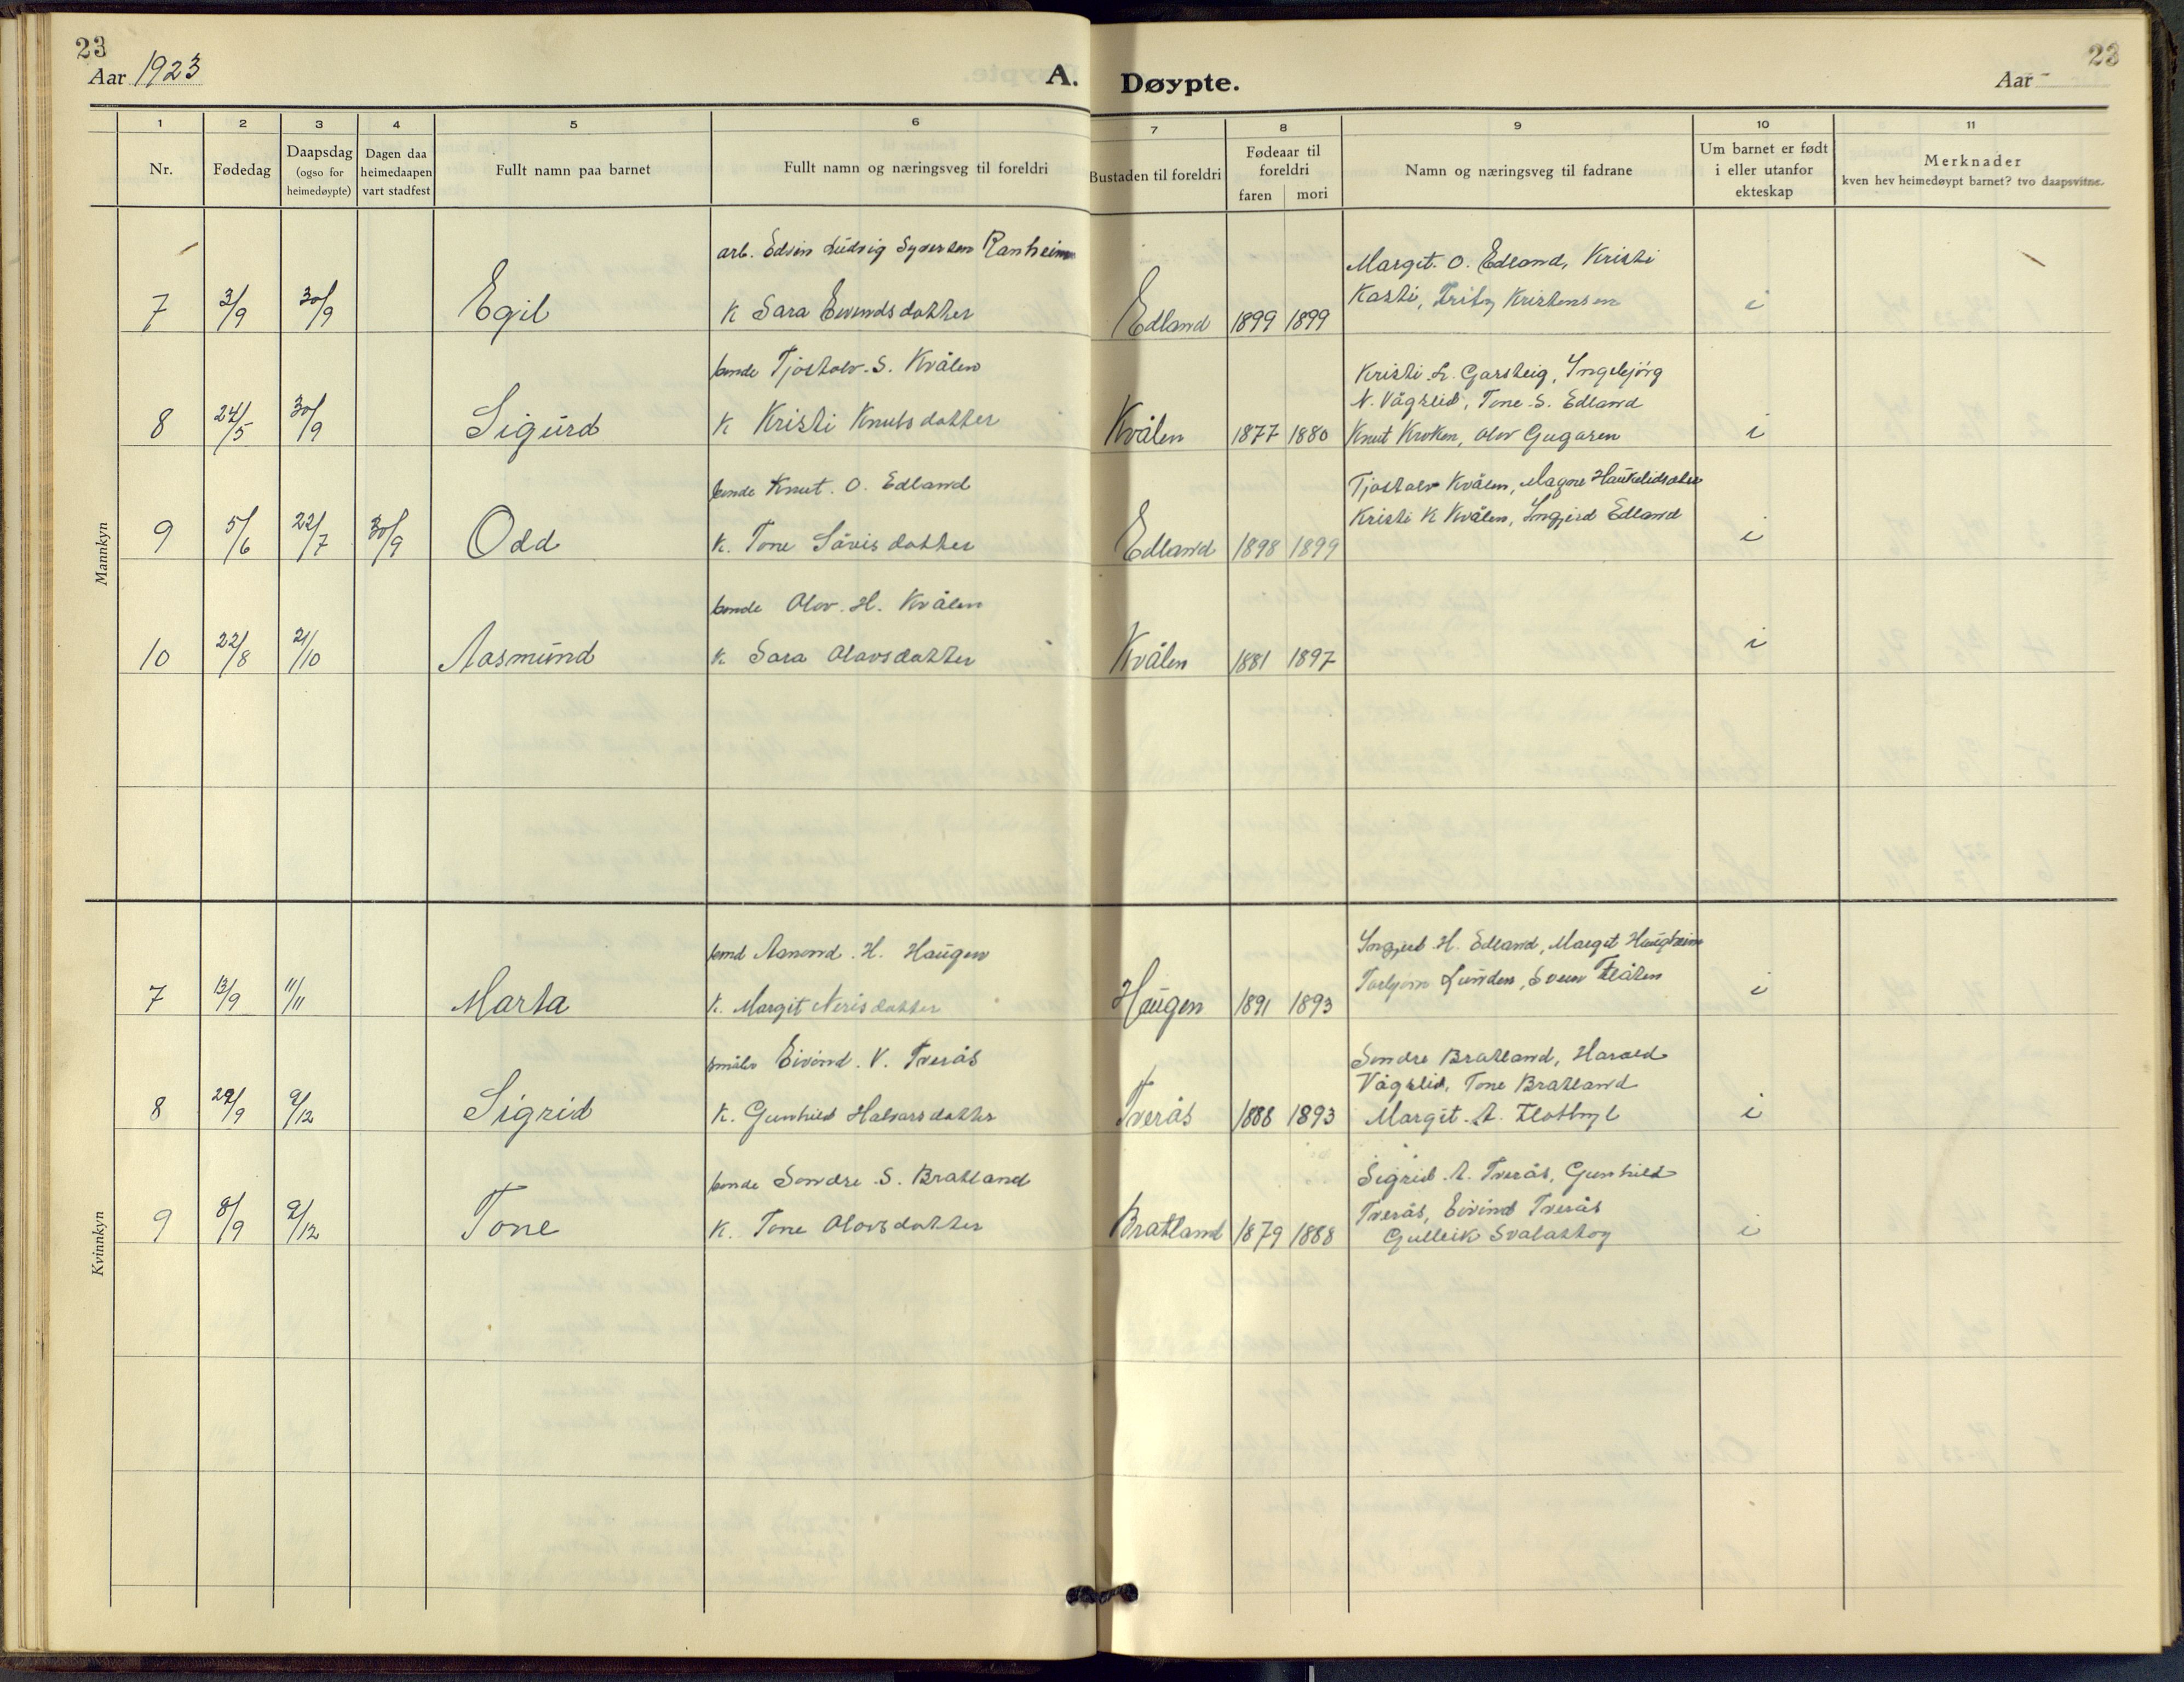 23
Aar 1923
A. Døypte.
Aar -
23
1 2 3 4 5 6 7 8 9 10 11
Nr.
Fødedag
Daapsdag
(ogso for
heimedøypte)
Dagen daa
heimedaapen
vart stadfest
Fullt namn paa barnet
Fullt namn og næringsveg til foreldri
Bustaden til foreldri
Fødeaar til
foreldri
faren mori
Namn og næringsveg til fadrane
Um barnet er født
i eller utanfor
ekteskap
Merknader
kven hev heimedøypt barnet? tvo daapsvitne.
Mannkyn
arb. Edvin Ludvig Syversen Ranheim
Margit. O. Edland, Kristi
7 3/9 30/9 Egil K Sara Eivindsdotter Edland 1899 1899 Kasti, Fritz Kristensen i
bonde Tjostolv. S. Kvålen
Kristi L. Garsteig, Ingebjörg
N. Vågslid, Tone. S. Edland
8 24/5 30/9 Sigurd K Kristi Knutsdotter Kvålen 1877 1880 Knut Kroken, Olov Gugaren i
bonde Knut. O. Edland
Tjostolv Kvålen, Magne Haukelidsæter
Kristi K Kvålen, Ingjerd Edland
9 5/6 22/7 30/9 Odd K. Tone Såvisdotter Edland 1898 1899 i
bonde Olov. H. Kvålen
10 22/8 21/10 Aasmund K Sara Olavsdotter Kvålen 1881 1897 i
Kvinnkyn
bond Asmond. H. Haugen
Ingjerd H. Edland, Margit Haugheim
Torbjorn Lunden, Svein Flåten
7 13/9 11/11 Marta K. Margit Nerisdotter Haugen 1891 1893 i
småbr Eivind. V. Tverås
Sondre Bratland, Harald
Vågslid, Tone Bratland
8 29/9 9/12 Sigrid K. Gunhild Halvarsdotter Tverås 1888 1893 Margit. A. Flothyl i
bonde Sondre. S. Bratland
Sigrid. A. Tverås, Gunhild
Tverås, Eivind Tverås
9 8/9 9/12 Tone K. Tone Olovsdotter Bratland 1879 1888 Gulleik Svalastog i